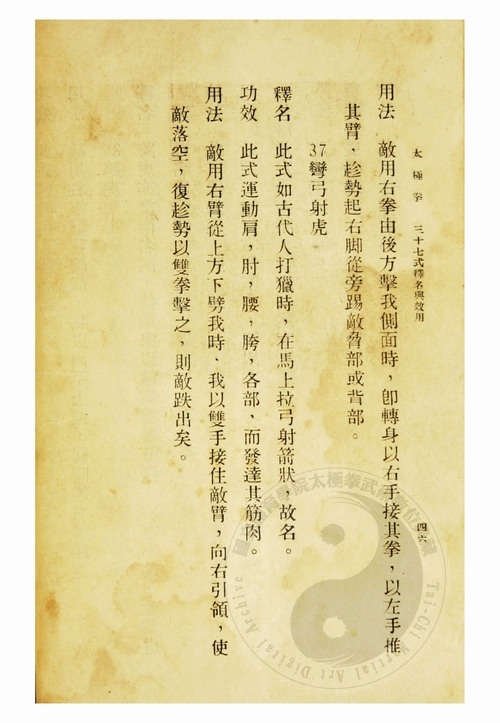 太極拳　三十七式釋名與效用
四六
用法　敵用右拳由後方擊我側面時，卽轉身以右手接其拳，以左手推
其臂，趁勢起右脚從旁踢敵脅部或背部。
37彎弓射虎
釋名　此式如古代人打獵時，在馬上拉弓射箭狀，故名。
功效　此式運動肩，肘，腰，胯，各部，而發達其筋肉。
用法　敵用右臂從上方下劈我時、我以雙手接住敵臂，向右引領，使
敵落空，復趁勢以雙拳擊之，則敵跌出矣。
Tai-Chi Martial Art Digital Archive